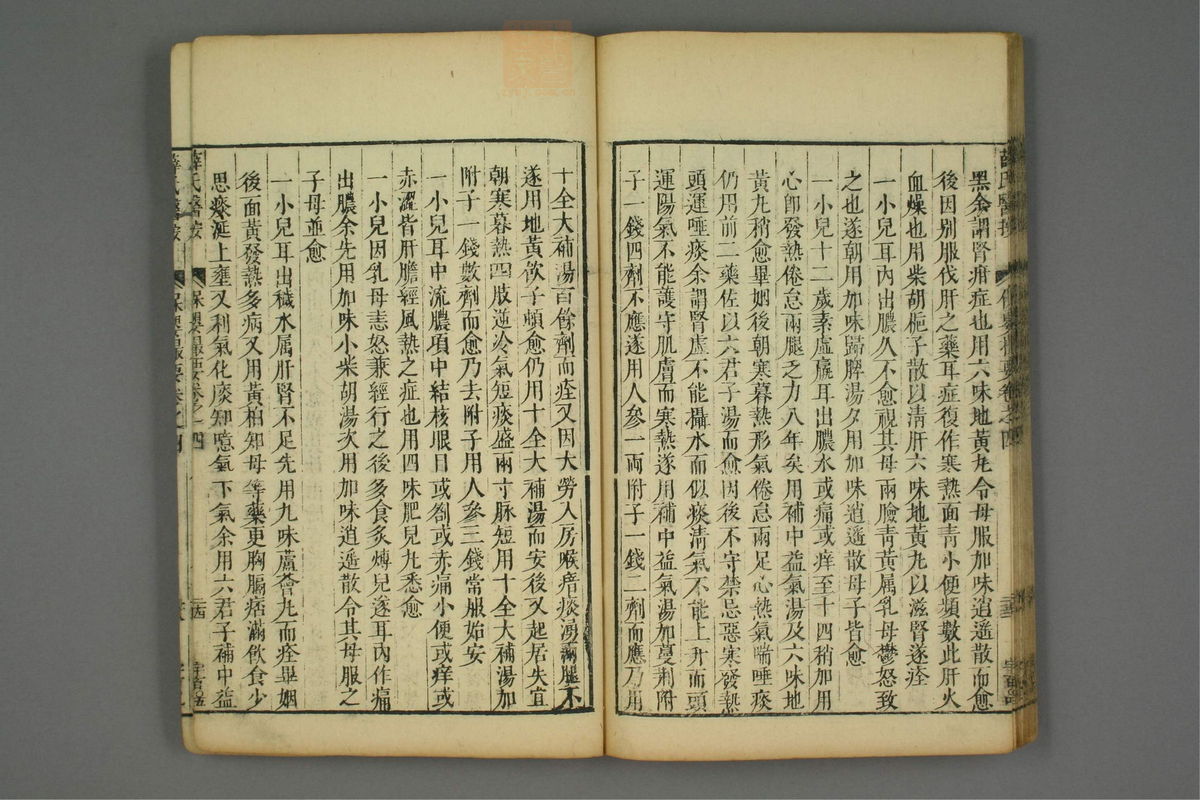 黑余謂腎疳症也用六味地黃丸令母服加味逍遥散而愈
後因别服伐肝之藥耳症復作寒熱面青小便頻數此肝火
血燥也用柴胡梔子散以清肝六味地黃丸以滋腎遂痊
一小兒耳內出膿久不愈視其母兩臉青黃属乳母鬱怒致
之也遂朝用加味歸脾湯夕用加味逍遥散母子皆愈
一小兒十二歲素虛羸耳出膿水或痛或痒至十四稍加用
心即發熱倦怠兩腿乏力八年矣用補中益氣湯及六味地
黃丸稍愈畢姻後朝寒暮熱形氣倦怠兩足心熱氣喘唾痰
仍用前二藥佐以六君子湯而愈因後不守禁忌惡寒發熱
頭運唾痰余謂腎虛不能攝水而似痰清氣不能上升而頭
運陽氣不能護守肌膚而寒熱遂用補中益氣湯加蔓荆附
子一錢四劑不應遂用人參一兩附子一錢二劑而應乃用
薛氏醫按
保嬰撮要卷之四
十全大補湯百餘劑而痊又因大勞入房喉瘖痰湧兩腿不
遂用地黃飲子頓愈仍用十全大補湯而安後又起居失宜
朝寒暮熱四肢逆冷氣短痰盛兩寸脉短用十全大補湯加
附子一錢數劑而愈乃去附子用人參三錢常服始安
一小兒耳中流膿項中結核眼目或劄或赤痛小便或痒或
赤澀皆肝膽經風熱之症也用四味肥兒丸悉愈
一小兒因乳母恚怒兼經行之後多食炙煿兒遂耳內作痛
出膿余先用加味小柴胡湯次用加味逍遥散令其母服之
子母並愈
一小兒耳出穢水属肝腎不足先用九味蘆薈丸而痊畢姻
後面黃發熱多病又用黃柏知母等藥更胸膈痞滿飲食少
思痰涎上壅又利氣化痰知噫氣下氣余用六君子補中益
薛氏醫按
保嬰撮要卷之四